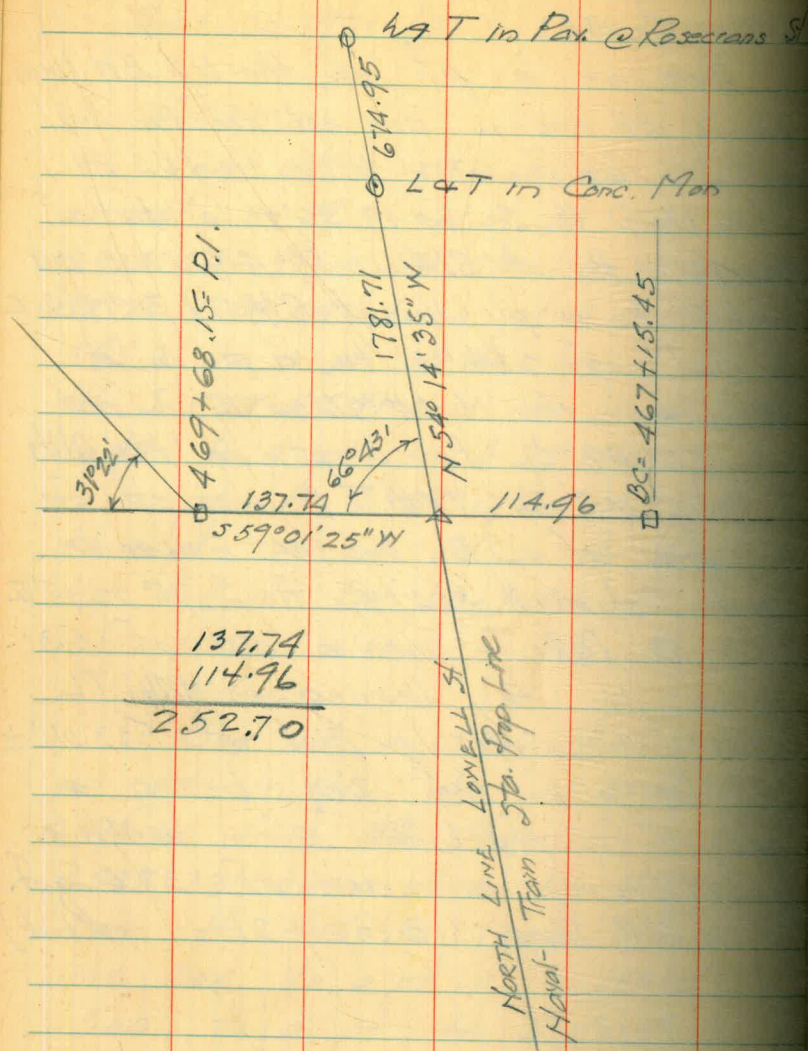 L&T in Pav. @ Rosecrans St
674.95
L&T in Conc. Mon
469+68.15= P.I.
1781.71
N 54° 14' 35" W
BC= 467+15.45
31°22'
66°43'
137.74
114.96
S 59°01'25" W
137.74
114.96
252.70
NORTH LINE LOWELL St.
Naval- Train Sta. Prop Line